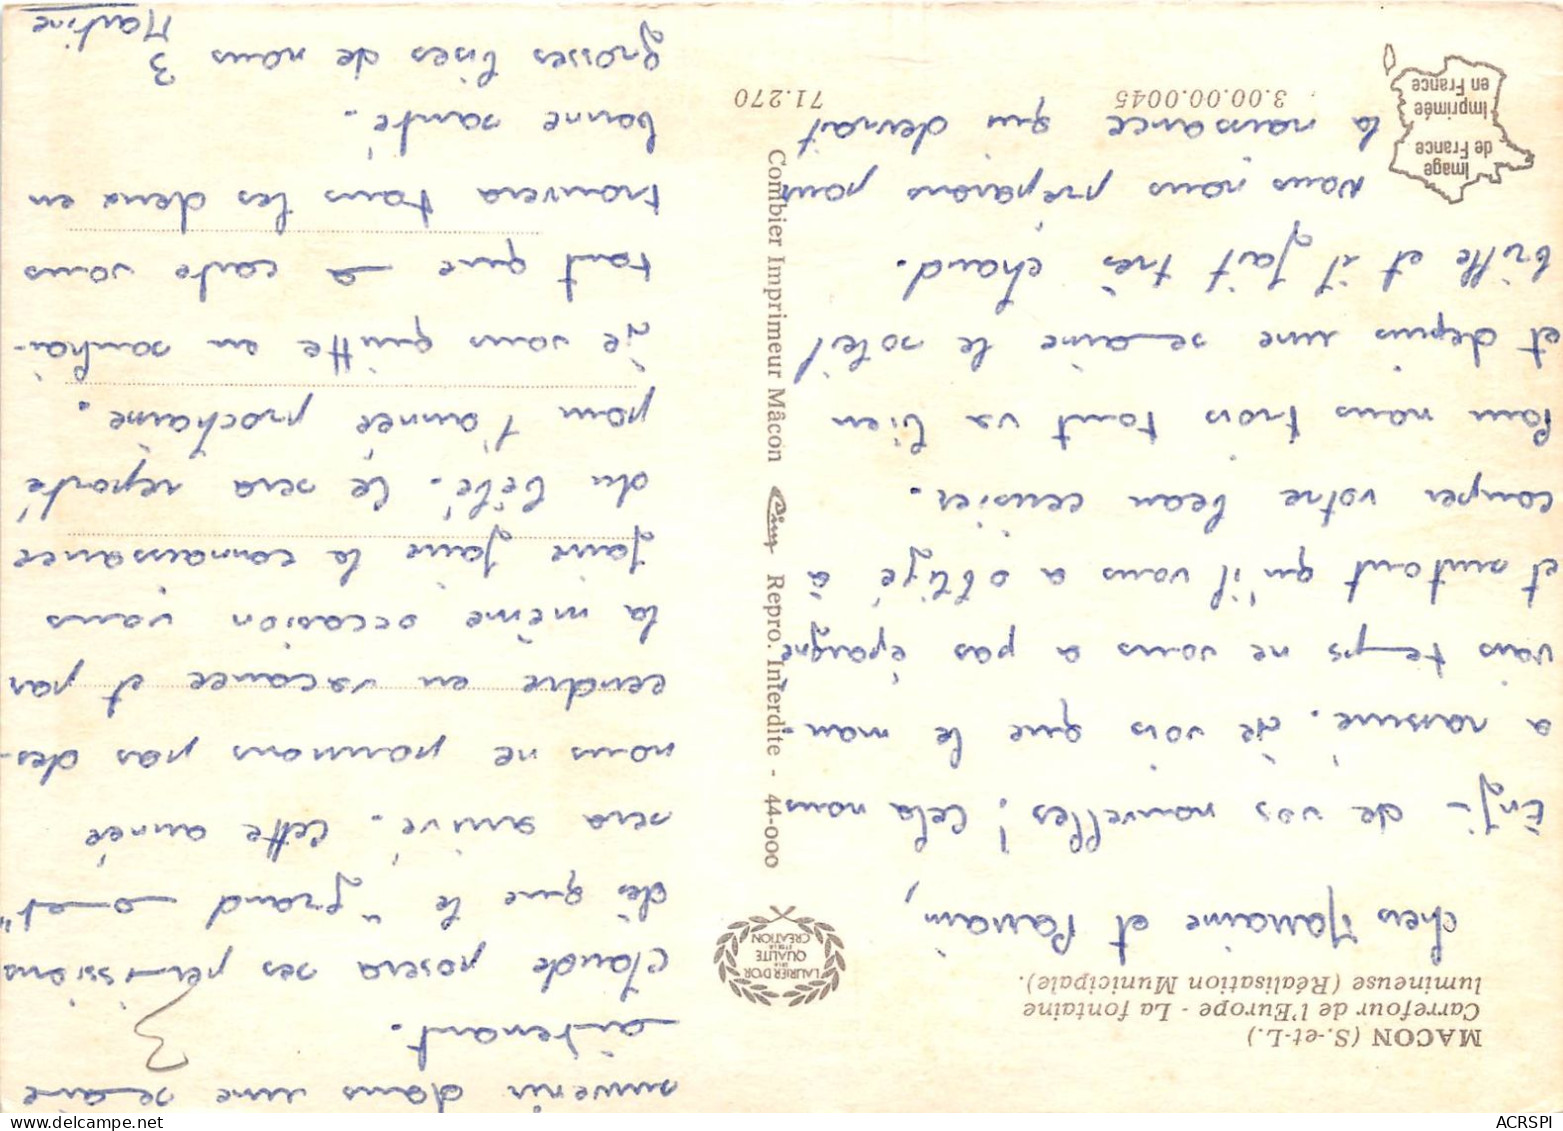 MACON (S.-et-L.)
Carrefour de l'Europe - La fontaine
lumineuse (Réalisation Municipale).
Chers Marraine et Parrain,
Enfin de vos nouvelles! Cela nous
a rassuré. Je vois que le mau-
vais temps ne vous a pas épargné
et autant qu'il vous a obligé à
couper votre beau cerisier.
Pour nous trois tout va bien
et depuis une semaine le soleil
brille et il fait très chaud.
Nous nous préparons pour
la naissance qui devrait
survenir dans une semaine
maintenant.
Claude posera ses permissions
dès que le "grand moment"
sera arrivé. Cette année
nous ne pourrons pas des-
cendre en vacance et par
la même occasion vous
faire faire la connaissance
du bébé. Ce sera reporté
pour l'année prochaine.
Je vous quitte en souhai-
tant que la carte vous
trouvera tous les deux en
bonne santé.
grosses bises de nous 3
Martine
3
LAURIER D'OR
DE LA
QUALITE
ET DE LA
CREATION
Combier Imprimeur Mâcon Cim Repro. Interdite - 44-000
3.00.00.0045
71.270
Image
de France
Imprimée
en France
ACRSPI